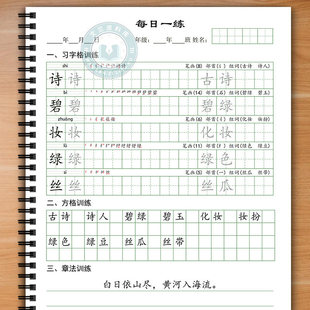 每日一练
年 月 日 年级: 年 班 姓名:
一、习字格训练
shī 笔画(8) 部首(讠) 组词(古诗 诗人)
诗 诗 古诗
笔画(14) 部首(石) 组词(碧绿 碧玉)
碧 碧 碧绿
zhuāng 笔画(6) 部首(女) 组词(化妆 妆扮)
妆 妆 化妆
lǜ 笔画(11) 部首(纟) 组词(绿色 绿豆)
绿 绿 绿色
sī 笔画(5) 部首(一) 组词(丝瓜 丝带)
丝 丝 丝瓜
二、方格训练
古诗 诗人 碧绿 碧玉 化妆 妆扮
绿色 绿豆 丝瓜 丝带
三、章法训练
白日依山尽，黄河入海流。